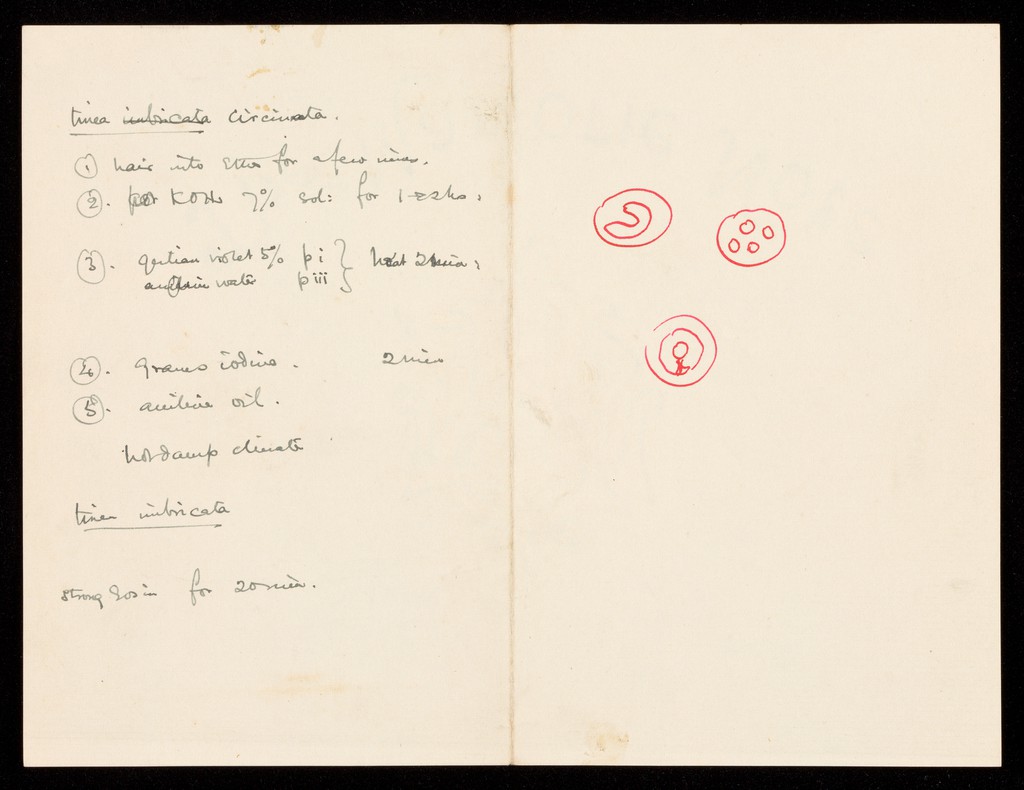 tinea imbricata circinata.
① hair into ether for a few mins.
②. put KOH 7% sol: for 1-2hs.
③. gentian violet 5% p i } heat 2 min.
anilin water p iii
④. grams iodine. 2 min
⑤. aniline oil.
hot damp climate
tinea imbricata
strong Eosin for 20 min.